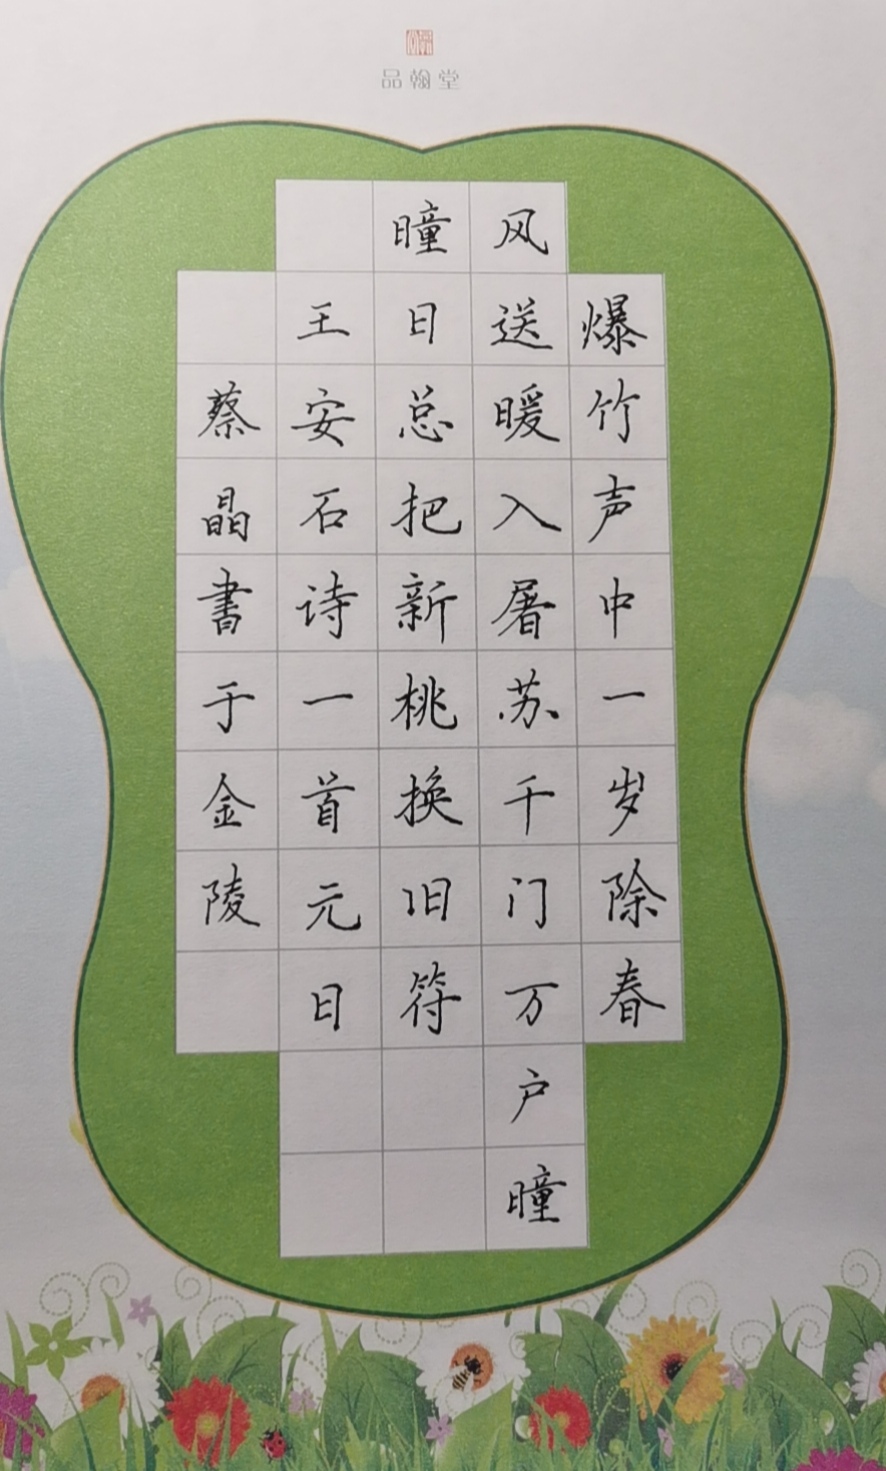 品翰堂
爆竹声中一岁除春
风送暖入屠苏千门万户曈
曈日总把新桃换旧符
王安石诗一首元日
蔡晶書于金陵